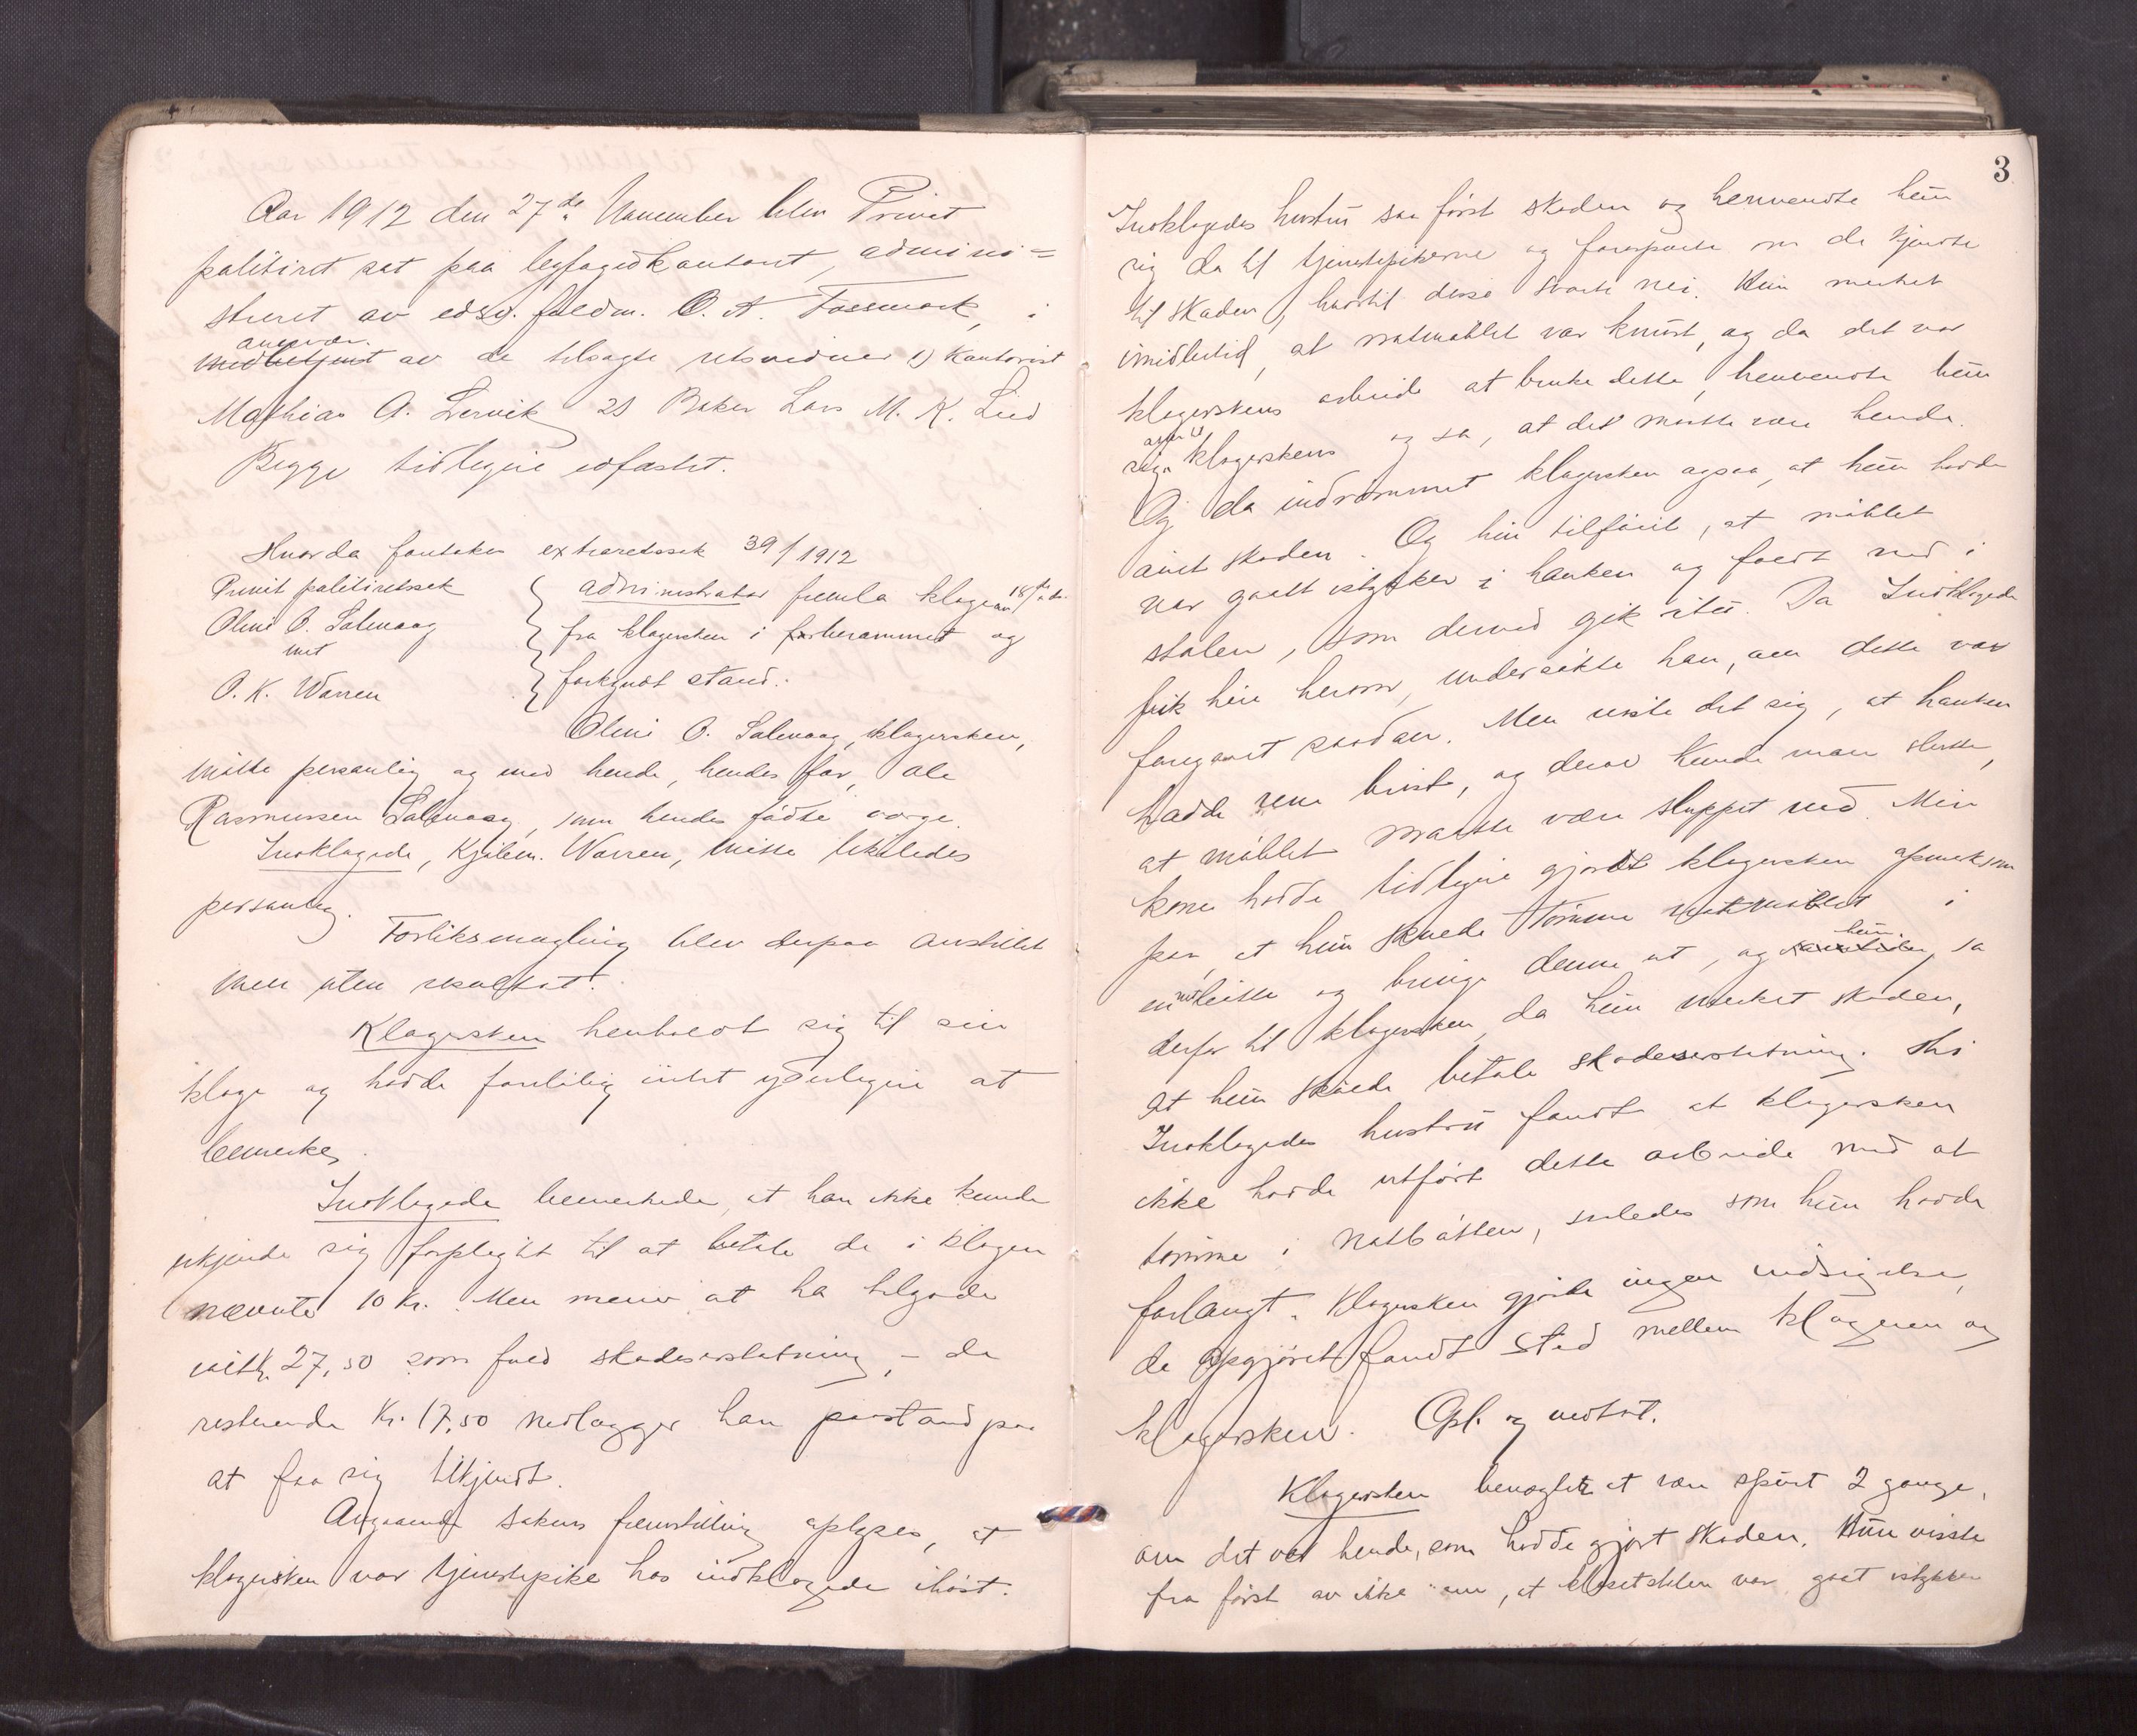 Aar 1912 den 27de November blev Privat
politiret sat paa byfogedkontoret, admini=
streret av edsv. fuldm. O. A. Fossmark, i
overvær
medbetjent av de tilsagte retsvidner 1) Kontorist
Mathias A. Lervik 2) Baker Lars M. K. Lied
Begge tidligere edfæstet.
Hvorda foretoges extraretssak 39/1912
Privat politiretssak
Oline O. Salevaag
mot
O. K. Warren
administrator fremla klage av 18/ ds.
fra klagersken i forberammet og
forkyndt stand.
Oline O. Salevaag, klagersken,
møtte personlig og med hende, hendes far, Ole
Rasmussen Salevaag, som hendes fødte verge.
Indklagede, Kjøbm. Warren, møtte likeledes
personlig.
Forliksmægling blev derpaa anstillet
men uten resultat.
Klagersken henholdt sig til sin
klage og hadde foreløbig intet yderligere at
bemerke.
Indklagede bemerkede, at han ikke kunde
erkjende sig forpligtet til at betale de i klagen
nævnte 10 Kr. Men mener at ha tilgode
Kr. 27,50 som fuld skadeserstatning, - de
resterende Kr. 17,50 nedlægger han paastand paa
at faa sig tilkjendt.
Angaaende sakens fremstilling oplyses, at
klagersken var tjenestepike hos indklagede ihøst.
3
Indklagedes hustru saa først skaden og henvendte hun
sig da til tjenestepikerne og forespurte om de kjendte
til skaden, hvortil disse svarte nei. Hun merket
imidlertid, at natmøblet var knust, og da det var
klagerskens arbeide at bruke dette, henvendte hun
sig atter til klagersken og sa, at det maatte være hende.
Og da indrømmet klagersken ogsaa, at hun hadde
gjort skaden. Og hun tilføiet, at møblet
var gaat istykker i hanken og faldt ned i
skaalen, som derved gik itu. Da Indklagede
fik høre herom, undersøkte han, om dette var
foregaaet saadan. Men viste det sig, at hanken
hadde rene brist, og derav kunde man slutte,
at møblet maatte være sluppet ned. Min
kone hadde tidligere gjort klagersken opmerksom
paa, at hun skulde tømme natmøblet i
en bøtte og bringe denne ut, og hun sa
derfor til klagersken, da hun merket skaden,
at hun skulde betale skadeserstatning. Thi
Indklagedes hustru fandt at klagersken
ikke hadde utført dette arbeide med at
tømme i natbøtten, saaledes som hun hadde
forlangt. Klagersken gjorde ingen indsigelse,
da opgjøret fandt sted mellem klageren og
klagersken. Opl. og vedtat.
Klagersken benegtet at være spurt 2 gange,
om det var hende, som hadde gjort skaden. Hun visste
fra først av ikke om, at klosetskaalen var gaat istykker